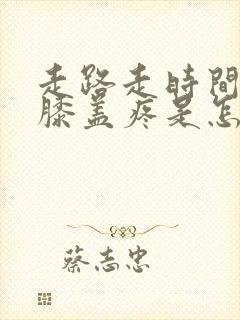 走路走時間
膝盖疼是怎
蔡志忠